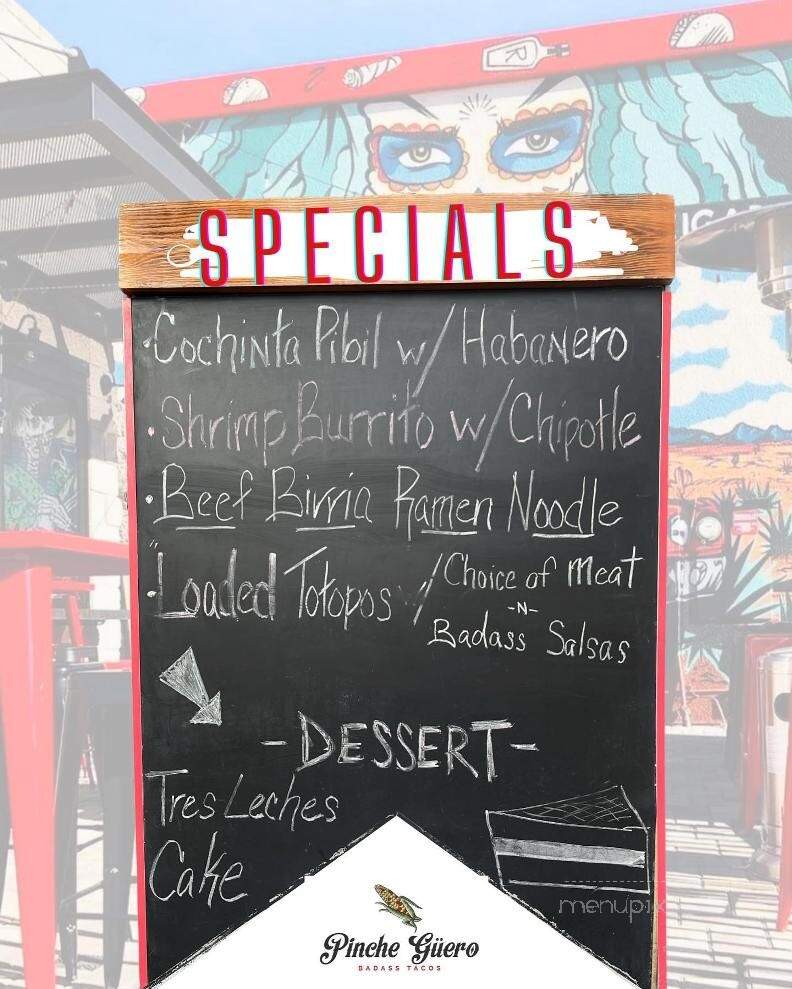 SPECIALS
·Cochinta Pibil w/ Habanero
·Shrimp Burrito w/ Chipotle
·Beef Birria Ramen Noodle
·Loaded Totopos w/ Choice of Meat
-N-
Badass Salsas
-DESSERT-
Tres Leches
Cake
menupix
Pinche Güero
BADASS TACOS